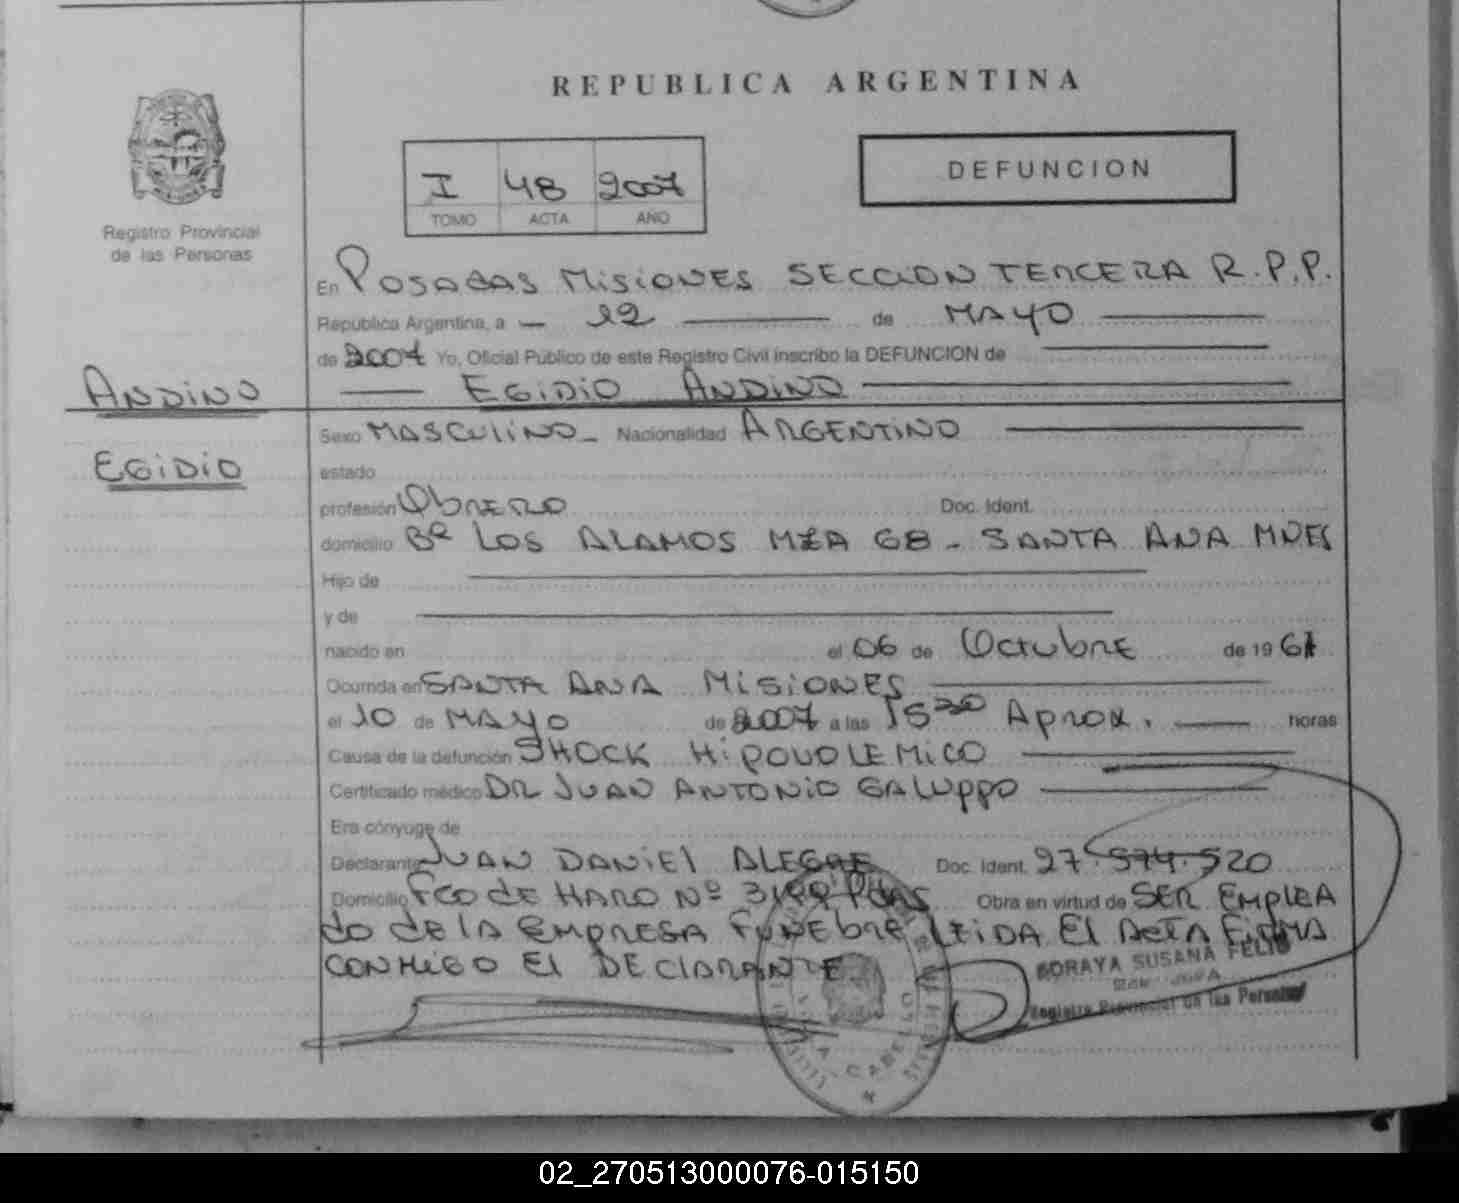 REPUBLICA ARGENTINA
I 48 2007
TOMO ACTA AÑO
DEFUNCION
Registro Provincial
de las Personas
En POSADAS MISIONES SECCION TERCERA R.P.P.
República Argentina, a — 12 — de MAYO —
de 2007 Yo, Oficial Público de este Registro Civil inscribo la DEFUNCION de —
— EGIDIO ANDINO —
ANDINO
EGIDIO
Sexo MASCULINO - Nacionalidad ARGENTINO —
estado
profesión ObRERO Doc. Ident.
domicilio Bº LOS ALAMOS MZA 68 - SANTA ANA MNES
Hijo de —
y de —
nacido en el 06 de OctubRE de 1961
Ocurrida en SANTA ANA MISIONES —
el 10 de MAYO de 2007 a las 15 30 Aprox. — horas
Causa de la defunción SHOCK HIPOVOLEMICO —
Certificado médico DR JUAN ANTONIO GALUppo —
Era cónyuge de
Declarante JUAN DANIEL ALEGRE Doc. Ident. 27.574.520
Domicilio FCO dE HARO Nº PDAS Obra en virtud de SER EMPLEA
do dE lA EMPRESA FUNEbRE LEIDA El ACTA FIRMA
CONMIGO El DEClARANTE
SORAYA SUSANA FELIU
Registro Provincial de las Personas
02_270513000076-015150